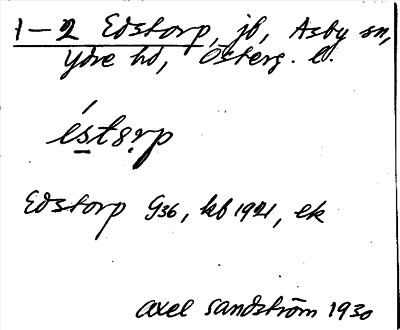 1–2 Edstorp, jb, Asby sn,
Ydre hd, Österg. l.
éstorp
Edstorp G36, kb 1921, ek
Axel Sandström 1930